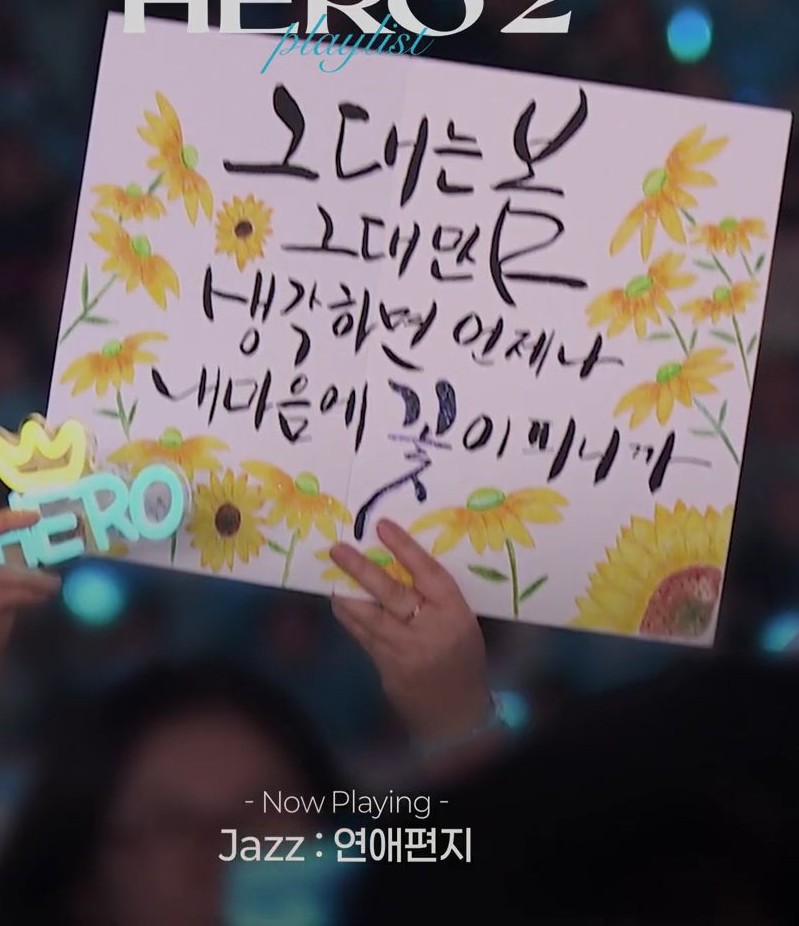 HERO 2
playlist
그대는 봄
그대만
생각하면 언제나
내마음에 꽃이 피니까
HERO
- Now Playing -
Jazz : 연애편지